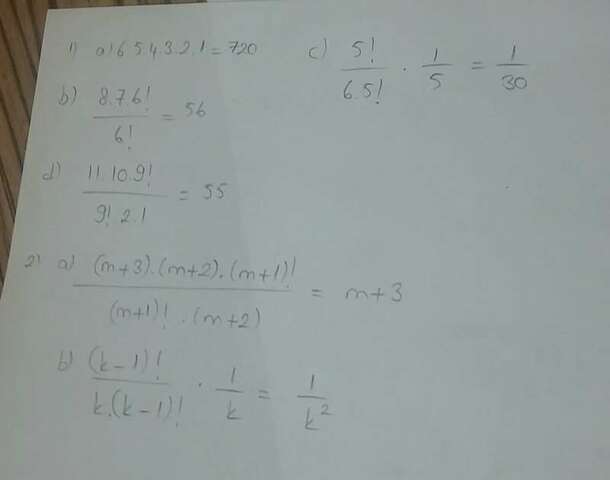 1) a) 6 5.4.3.2.1 = 720
c) 5! / 6.5! . 1/5 = 1/30
b) 8.7.6! / 6! = 56
d) 11.10.9! / 9! 2.1 = 55
2) a) (m+3).(m+2).(m+1)! / (m+1)! . (m+2) = m+3
b) (k-1)! / k.(k-1)! . 1/k = 1/k²